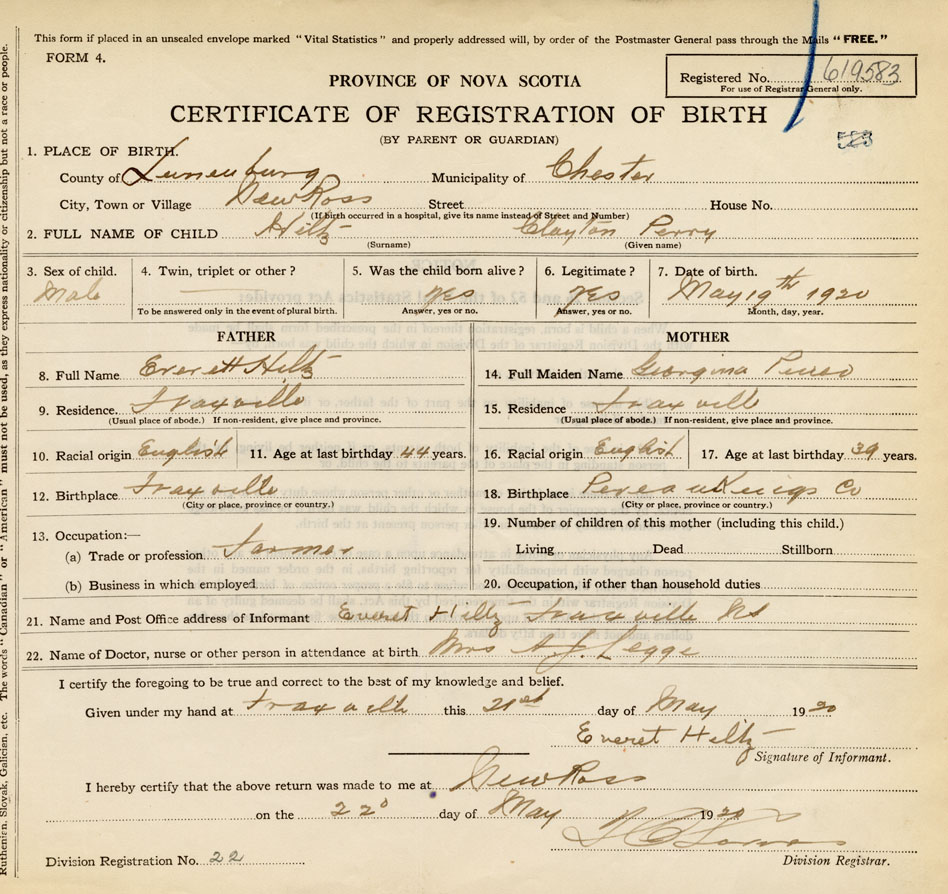 This form if placed in an unsealed envelope marked "Vital Statistics" and properly addressed will, by order of the Postmaster General pass through the Mails "FREE."
FORM 4.
PROVINCE OF NOVA SCOTIA
Registered No. 619583
For use of Registrar General only.
CERTIFICATE OF REGISTRATION OF BIRTH
(BY PARENT OR GUARDIAN)
523
1. PLACE OF BIRTH.
County of Lunenburg Municipality of Chester
City, Town or Village New Ross Street House No.
(If birth occurred in a hospital, give its name instead of Street and Number)
2. FULL NAME OF CHILD Hiltz Clayton Perry
(Surname) (Given name)
3. Sex of child. 4. Twin, triplet or other? 5. Was the child born alive? 6. Legitimate? 7. Date of birth.
Male yes yes May 19th 1920
To be answered only in the event of plural birth. Answer, yes or no. Answer, yes or no. Month, day, year.
FATHER
8. Full Name Everett Hiltz
9. Residence. Fraxville
(Usual place of abode.) If non-resident, give place and province.
10. Racial origin English 11. Age at last birthday 44 years.
12. Birthplace Fraxville
(City or place, province or country.)
13. Occupation:—
(a) Trade or profession. Farmer
(b) Business in which employed
MOTHER
14. Full Maiden Name Georgina
15. Residence Fraxville
(Usual place of abode.) If non-resident, give place and province.
16. Racial origin English 17. Age at last birthday 39 years.
18. Birthplace Pereau Kings Co
(City or place, province or country.)
19. Number of children of this mother (including this child.)
Living Dead Stillborn
20. Occupation, if other than household duties
21. Name and Post Office address of Informant Everet Hiltz Fraxville NS
22. Name of Doctor, nurse or other person in attendance at birth Mrs A. J. Legge
I certify the foregoing to be true and correct to the best of my knowledge and belief.
Given under my hand at Fraxville this 21st day of May 1920
Everet Hiltz
Signature of Informant.
I hereby certify that the above return was made to me at New Ross
on the 22d day of May 1920
Division Registration No. 22 Division Registrar.
Ruthenien, Slovak, Galician, etc. The words "Canadian" or "American" must not be used, as they express nationality or citizenship but not a race or people.